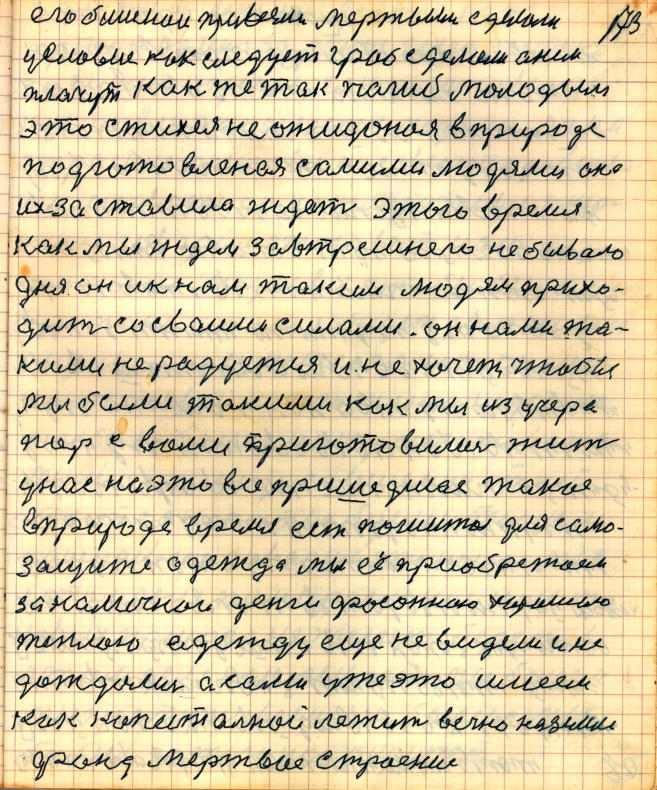 его бишеной привезли мертвым сделали 173
условие как следует гроб сделали а нем
плачут как же так погиб молодым
это стихея не ожиданая в природе
подготовленая самими людями она
их заставила ждат этого время
как мы ждем завтрешнего небывало
дня. он и к нам таким людям прихо-
дит со своими силами. он нами та-
кими не радуется и не хочет, чтобы
мы были такими как мы из учера
пор с вами приготовилис жит
у нас на это все пришедшае такое
в природе время ест пошита для само-
защите одежда мы её приобретаем
за наличнои денги фасонною хорошою
теплою одежду еще не видели и не
дождалис а сами уже это имеем
как капиталной лежит вечно на земли
фонд мертвое строение